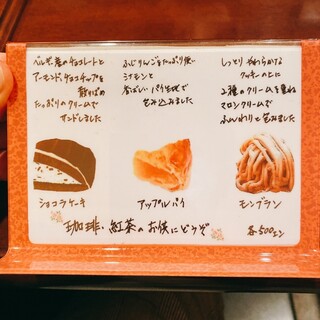 ベルギー産のチョコレートと
アーモンド、チョコチップを
散りばめ
たっぷりのクリームで
サンドしました
ショコラケーキ
ふじりんごをたっぷり使い
シナモンと
香ばしいパイ生地で
包み込みました
アップルパイ
しっとりやわらかな
クッキーの上に
2種のクリームを重ね
マロンクリームで
ふんわりと包みました
モンブラン
珈琲・紅茶のお供にどうぞ
各500エン